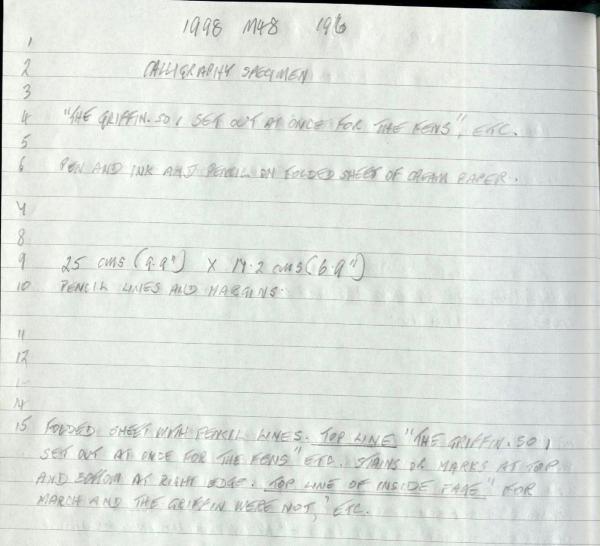 1998 M48 196
1
2 CALLIGRAPHY SPECIMEN
3
4 "THE GRIFFIN. SO I SET OUT AT ONCE FOR THE FENS", ETC.
5
6 PEN AND INK AND PENCIL ON FOLDED SHEET OF CREAM PAPER.
7
8
9 25 cms (9.9") X 17.2 cms (6.9")
10 PENCIL LINES AND MARGINS.
11
12
14
15 FOLDED SHEET WITH PENCIL LINES. TOP LINE "THE GRIFFIN. SO I
SET OUT AT ONCE FOR THE FENS" ETC. STAINS OR MARKS AT TOP
AND BOTTOM AT RIGHT EDGE. TOP LINE OF INSIDE PAGE "FOR
MARCH AND THE GRIFFIN WERE NOT," ETC.